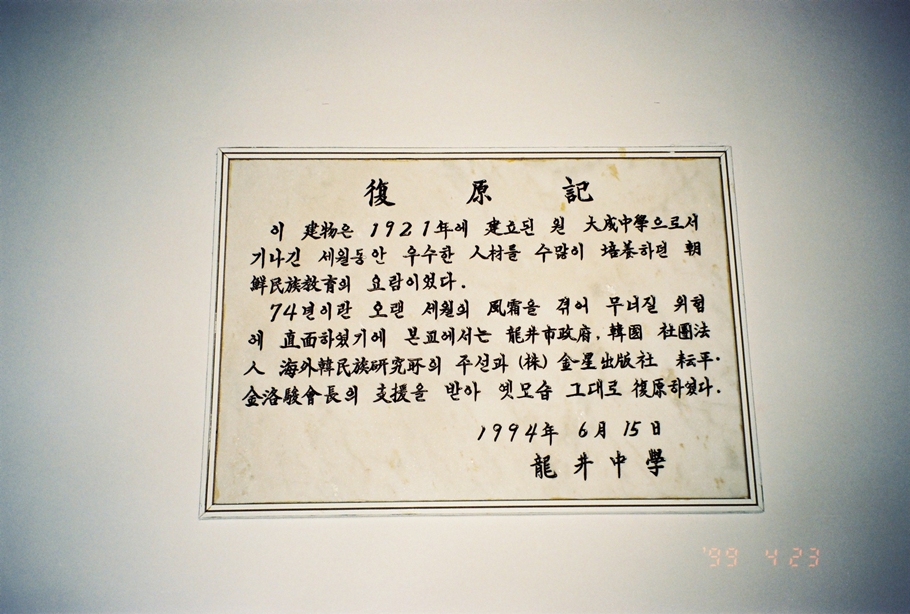 復原記
이 建物은 1921年에 建立된 원 大成中學으로서
기나긴 세월동안 우수한 人材를 수많이 培養하던 朝
鮮民族教育의 요람이였다.
74년이란 오랜 세월의 風霜을 겪어 무너질 위험
에 直面하였기에 본교에서는 龍井市政府, 韓國 社團法
人 海外韓民族硏究所의 주선과 (株) 金星出版社 耘平·
金洛駿會長의 支援을 받아 옛모습 그대로 復原하였다.
1994年 6月 15日
龍井中學
'99 4 23